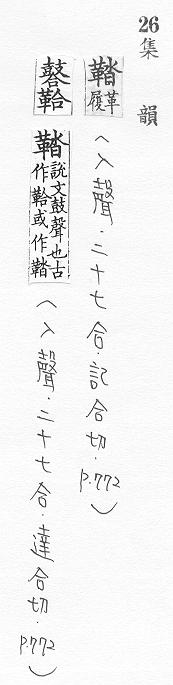 26 集韻
鞜 革履 (入聲.二十七合.記合切.p.772)
鞈 鞜 說文鼓聲也古作鞈或作鞜 (入聲.二十七合.達合切.p.772)